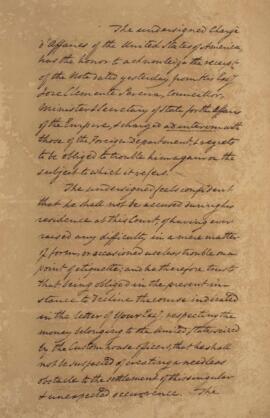 The undersigned Chargé
d'Affaires of the United States of America,
has the honor to acknowledge the receipt
of the Note dated yesterday from His Excy
José Clemente Pereira, Councillor,
Minister & Secretary of State for the Affairs
of the Empire, & charged ad interim with
those of the Foreign Department & regrets
to be obliged to trouble him again on the
subject to which it refers.
The undersigned feels confident
that he shall not be accused during his
residence at this Court of having ever
raised any difficulty in a mere matter
of form, or occasioned useless trouble on a
point of etiquette; and he therefore trusts
that being obliged in the present in-
stance to decline the course indicated
in the letter of Your Excy, respecting the
money belonging to the United States seized
by the Custom house officers, that he shall
not be suspected of creating a needless
obstacle to the settlement of this singular
& unexpected occurrence. The